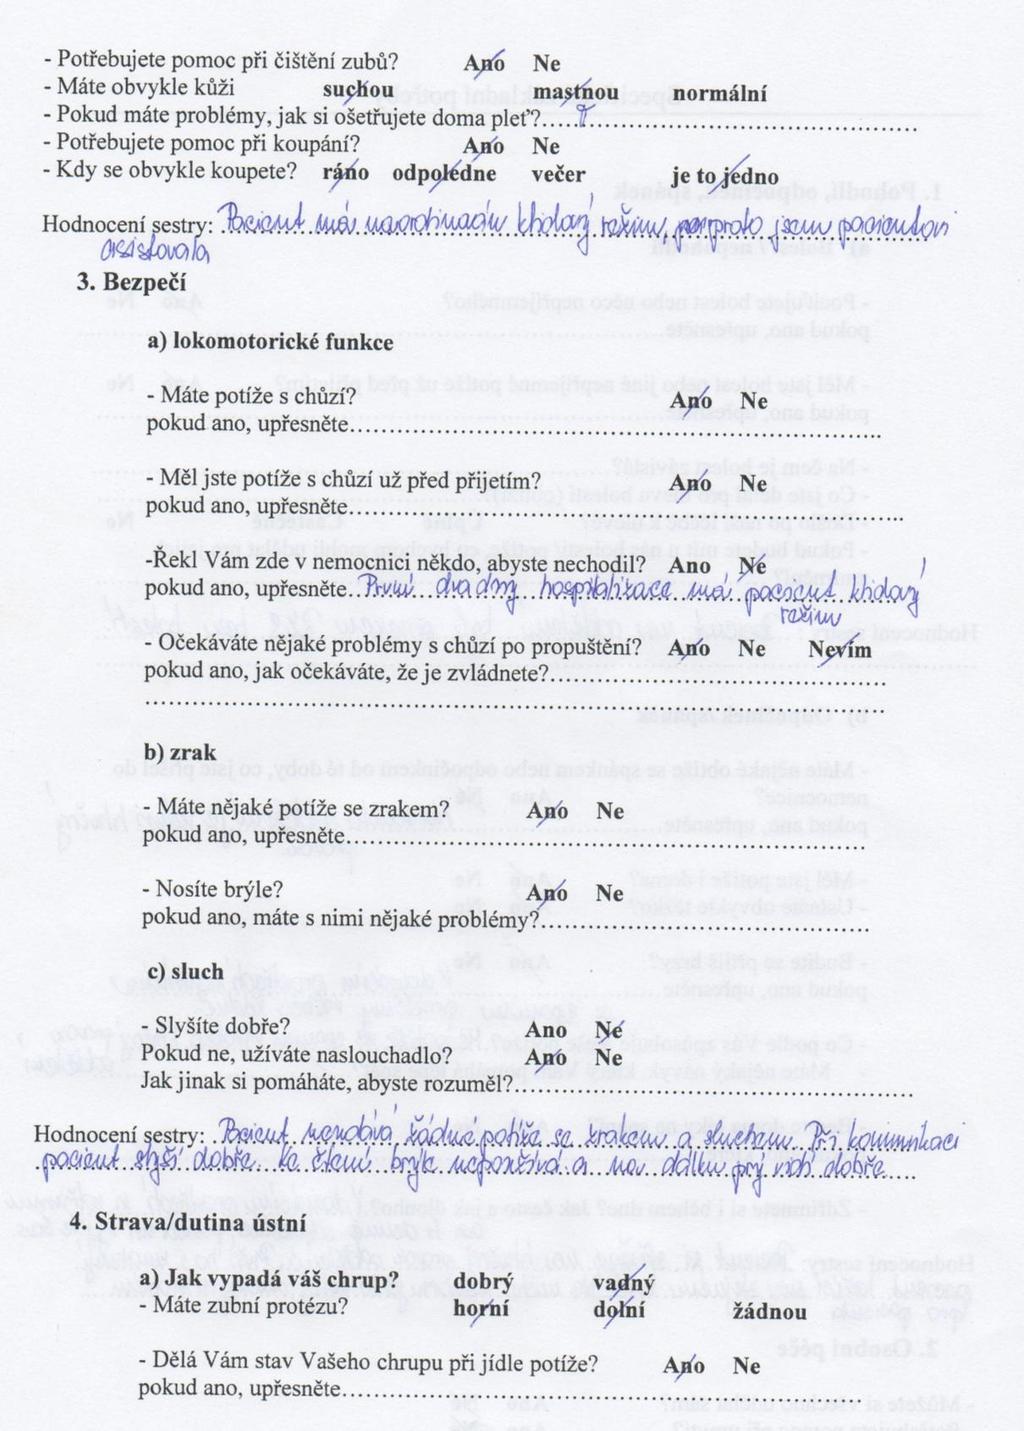 - Potřebujete pomoc při čištění zubů? Ano Ne
- Máte obvykle kůži suchou mastnou normální
- Pokud máte problémy, jak si ošetřujete doma pleť?
- Potřebujete pomoc při koupání? Ano Ne
- Kdy se obvykle koupete? ráno odpoledne večer je to jedno
Hodnocení sestry: Pacient má klidový režim, proto jsem pacientovi
asistovala
3. Bezpečí
a) lokomotorické funkce
- Máte potíže s chůzí? Ano Ne
pokud ano, upřesněte
- Měl jste potíže s chůzí už před přijetím? Ano Ne
pokud ano, upřesněte
-Řekl Vám zde v nemocnici někdo, abyste nechodil? Ano Ne
pokud ano, upřesněte. První dva dny hospitalizace má pacient klidový
režim
- Očekáváte nějaké problémy s chůzí po propuštění? Ano Ne Nevím
pokud ano, jak očekáváte, že je zvládnete?
b) zrak
- Máte nějaké potíže se zrakem? Ano Ne
pokud ano, upřesněte
- Nosíte brýle? Ano Ne
pokud ano, máte s nimi nějaké problémy?
c) sluch
- Slyšíte dobře? Ano Ne
Pokud ne, užíváte naslouchadlo? Ano Ne
Jak jinak si pomáháte, abyste rozuměl?
Hodnocení sestry: Pacient neudává žádné potíže se zrakem a sluchem. Při komunikaci
pacient slyší dobře. Ke čtení brýle nepoužívá a na dálku prý vidí dobře
4. Strava/dutina ústní
a) Jak vypadá váš chrup? dobrý vadný
- Máte zubní protézu? horní dolní žádnou
- Dělá Vám stav Vašeho chrupu při jídle potíže? Ano Ne
pokud ano, upřesněte